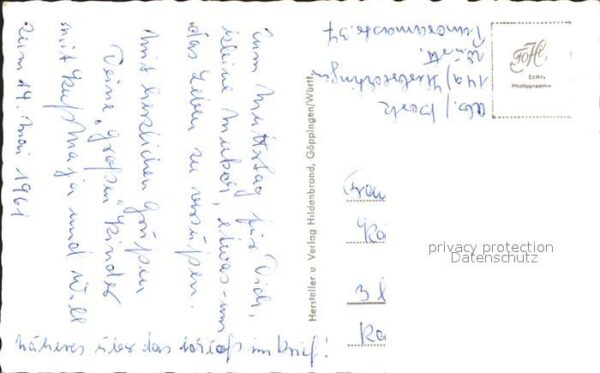 Zum Muttertag für Dich,
kleine Mukár, etwas - um
das Leben zu versüßen.
Mit herzlichen Grüßen
Deine „großen" Kinder
mit Kußmaja und Will
zum 14. Mai 1961
Näheres über das im Brief!
Hersteller u Verlag Hildenbrand, Göppingen/Württ.
Abs./
14a) Herbrechtingen
Württ.
Panoramastr. 37
Echte
Photographie
Frau
Ka
3 l
Ka
privacy protection
Datenschutz